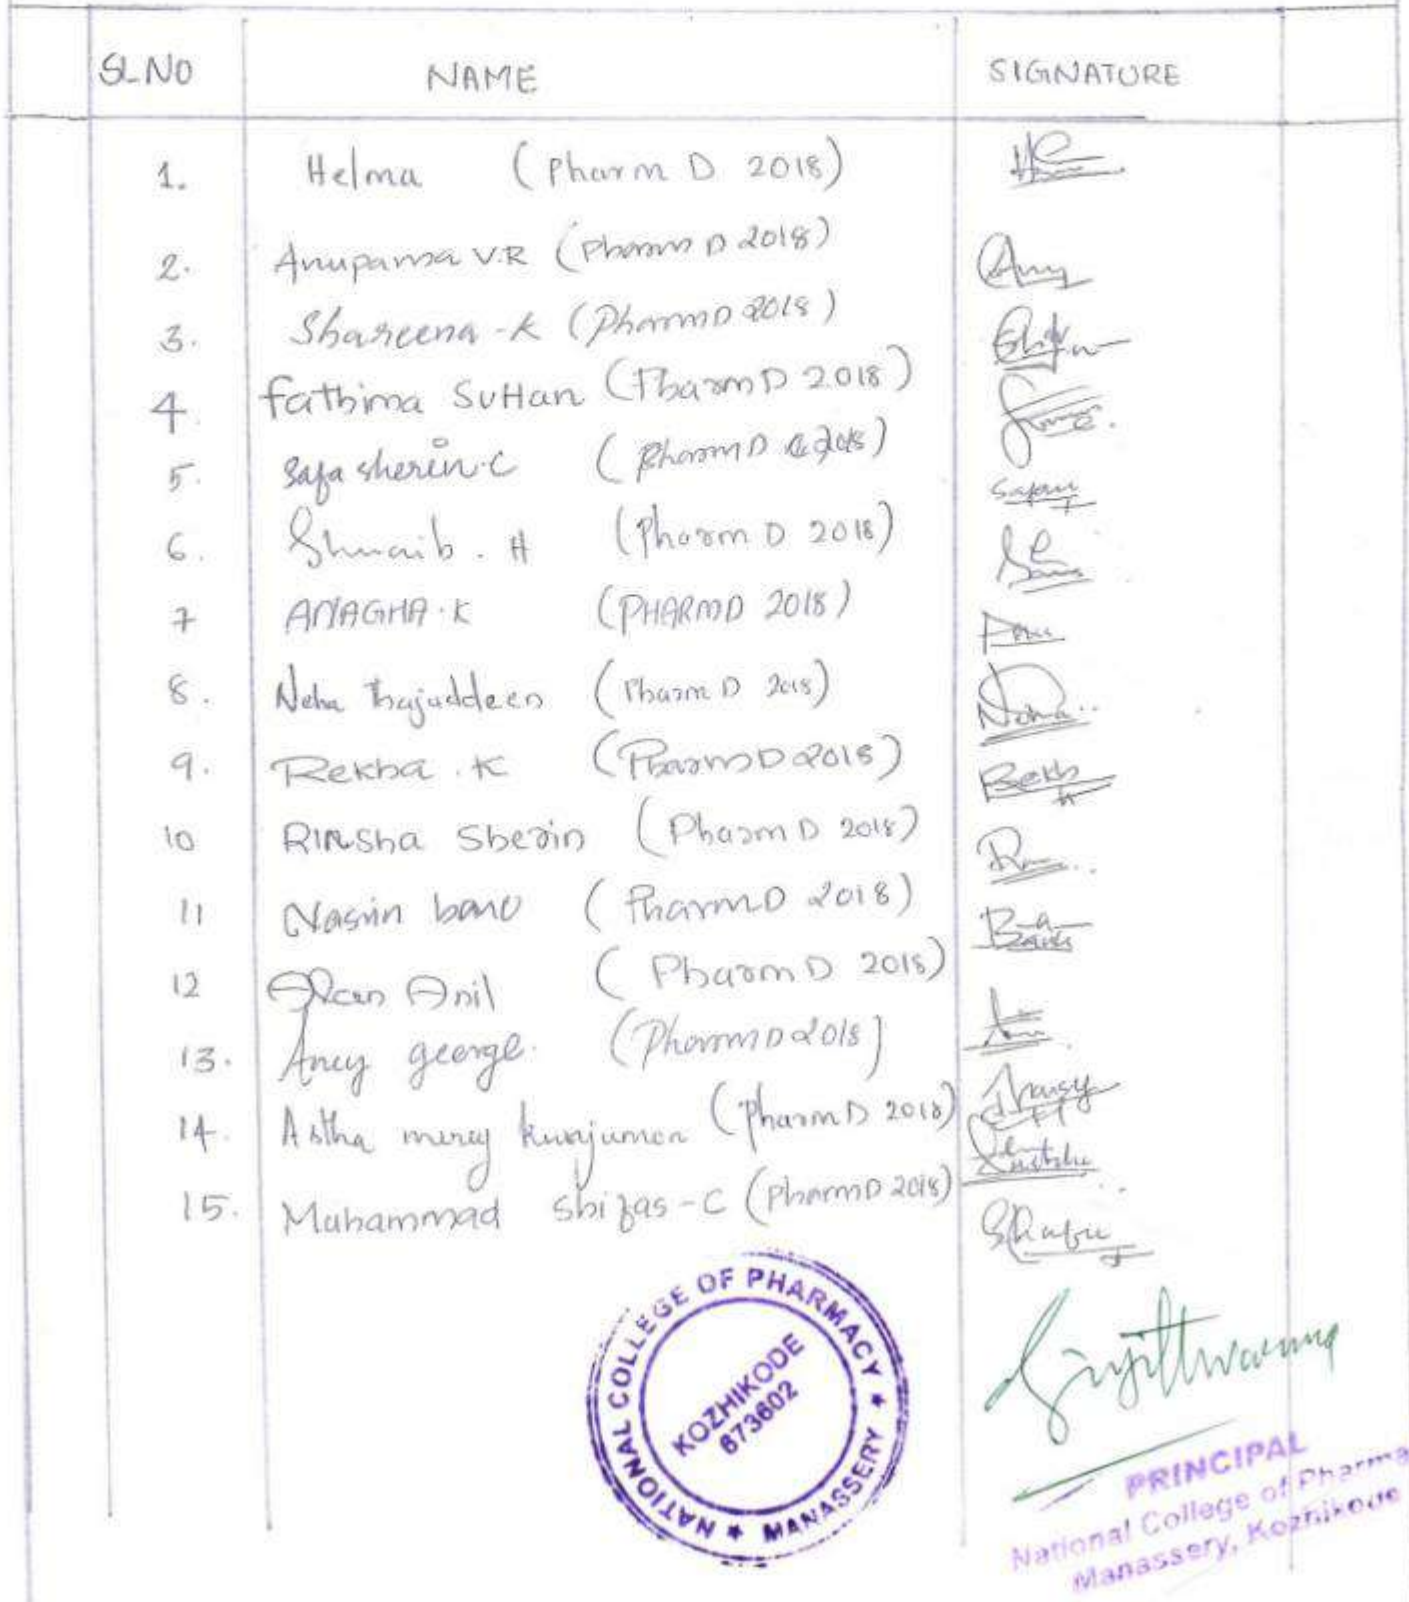 SL NO NAME SIGNATURE
1. Helma (Pharm D 2018)
2. Anupama V.R (Pharm D 2018)
3. Shareena - K (Pharm D 2018)
4. Fathima Suttan (Pharm D 2018)
5. Safa sherin. C (Pharm D 2018)
6. Shuaib . H (Pharm D 2018)
7 ANAGHA. K (PHARMD 2018)
8. Neha Thajuddeen (Pharm D 2018) Neha
9. Rekha . K (Pharm D 2018) Rekh
10 Rinsha Sherin (Pharm D 2018)
11 Nasrin banu (Pharm D 2018)
12 Alan Anil (Pharm D 2018)
13. Ancy george. (Pharm D 2018)
14. Astha mercy kunjumon (Pharm D 2018)
15. Muhammad Shifas - C (Pharm D 2018)
NATIONAL COLLEGE OF PHARMACY ★ MANASSERY ★
KOZHIKODE
673602
PRINCIPAL
National College of Pharma
Manassery, Kozhikode